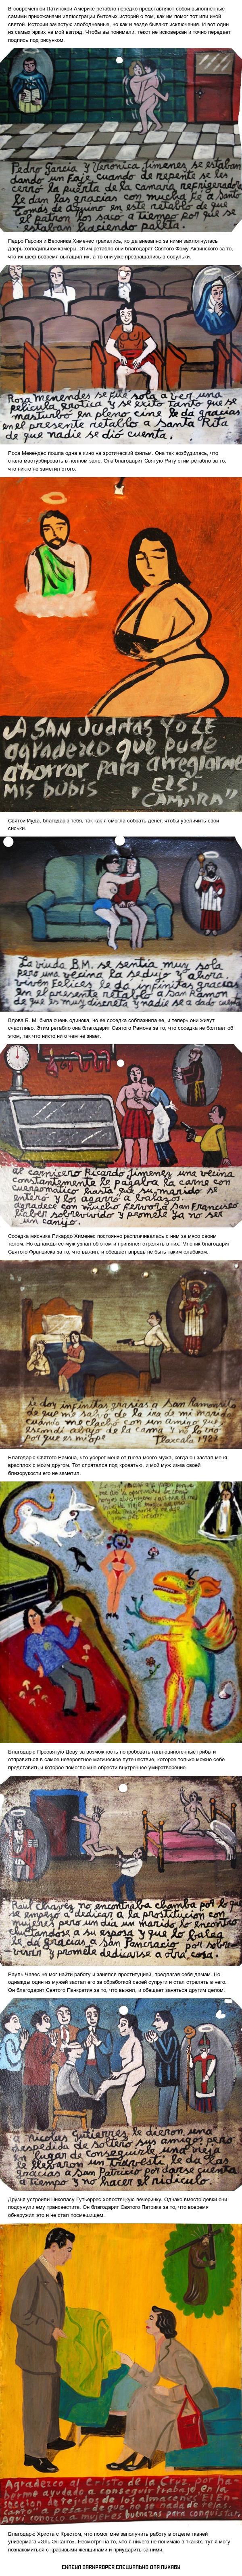 В современной Латинской Америке ретабло нередко представляют собой выполненные
самими прихожанами иллюстрации бытовых историй о том, как им помог тот или иной
святой. Истории зачастую злободневные, но как и везде бывают исключения. И вот одни
из самых ярких на мой взгляд. Чтобы вы понимали, текст не исковеркан и точно передает
подпись под рисунком.
Pedro García y Verónica Jimenes se estaban
dando un faje cuando de repente se les
cerro la puerta de la camara refrigerado
le dan las gracias con mucha fe a Santo
Tomás de Aquino en este retablo de que
el patron los saco a tiempo por que se
estaban haciendo paleta.
Педро Гарсия и Вероника Хименес трахались, когда внезапно за ними захлопнулась
дверь холодильной камеры. Этим ретабло они благодарят Святого Фому Аквинского за то,
что их шеф вовремя вытащил их, а то они уже превращались в сосульки.
Rosa Menendes se fue sola a ver una
película erotica y se exito tanto que se
masturbo en pleno cine le da gracias
en el presente retablo a Santa Rita
de que nadie se dio cuenta.
Роса Менендес пошла одна в кино на эротический фильм. Она так возбудилась, что
стала мастурбировать в полном зале. Она благодарит Святую Риту этим ретабло за то,
что никто не заметил этого.
A SAN JUDITAS YO LE
agradezco que pude
ahorrar para arreglarme
MIS BUBIS
Святой Иуда, благодарю тебя, так как я смогла собрать денег, чтобы увеличить свои
сиськи.
La viuda B.M. se sentia muy sola
pero una vecina la sedujo y ahora
viven felices le da infinitas gracias
en el presente retablo a San Ramon
de que la vecina
Вдова Б. М. была очень одинока, но ее соседка соблазнила ее, и теперь они живут
счастливо. Этим ретабло она благодарит Святого Рамона за то, что соседка не болтает об
этом, так что никто ни о чем не знает.
al carnicero Ricardo Jimenez una vecina
constantemente le pagaba la carne con
cuerpo
entero y lo agarro a balazos
agradece con mucho fervor a San Francisco
haber sobrevivido y promete ya no ser
un canijo.
Соседка мясника Рикардо Хименес постоянно расплачивалась с ним за мясо своим
телом. Но однажды ее муж узнал об этом и принялся стрелять в них. Мясник благодарит
Святого Франциска за то, что выжил, и обещает впредь не быть таким слабаком.
le doy infinitas gracias a San Ramoncito
de que me salvo de la ira de mi marido
cuando me encontro con un amigo que
escondi abajo de la cama y no lo vio
por que es miope Tlaxcala
Благодарю Святого Рамона, что уберег меня от гнева моего мужа, когда он застал меня
врасплох с моим другом. Тот спрятался под кроватью, и мой муж из-за своей
близорукости его не заметил.
Благодарю Пресвятую Деву за возможность попробовать галлюциногенные грибы и
отправиться в самое невероятное магическое путешествие, которое только можно себе
представить и которое помогло мне обрести внутреннее умиротворение.
Raul Chavez no encontraba chamba por lo que
se empezo a dedicar a la prostitución con
mujeres pero un dia un marido lo encontro
chutandose a su esposa y que lo balea
le da gracias a San Pancracio por sobre
vivir y promete dedicarse a otra cosa.
Рауль Чавес не мог найти работу и занялся проституцией, предлагая себя дамам. Но
однажды один из мужей застал его за обработкой своей супруги и стал стрелять в него.
Он благодарит Святого Панкратия за то, что выжил, и обещает заняться другим делом.
a Nicolas Gutierres le dieron una
despedida de soltero sus amigos pero
en lugar de conseguirle una vieja
le llevaron un Trasvesti le da las
gracias a San Patricio por darse cuenta
a Tiempo y no hacer el ridiculo.
Друзья устроили Николасу Гутьеррес холостяцкую вечеринку. Однако вместо девки они
подсунули ему трансвестита. Он благодарит Святого Патрика за то, что вовремя
обнаружил это и не стал посмешищем.
Agradezco al Cristo de la Cruz por ha-
berme ayudado a conseguir trabajo en la
seccion de telas de los almacenes El En-
canto a pesar de que no se nada de ropa,
aqui conozco a mujeres buenas para conquistar
Благодарю Христа с Крестом, что помог мне заполучить работу в отделе тканей
универмага «Эль Энканто». Несмотря на то, что я ничего не понимаю в тканях, тут я могу
познакомиться с красивыми женщинами и приударить за ними.
СКЛЕИЛ DARKPROPER СПЕЦИАЛЬНО ДЛЯ ПИКАБУ